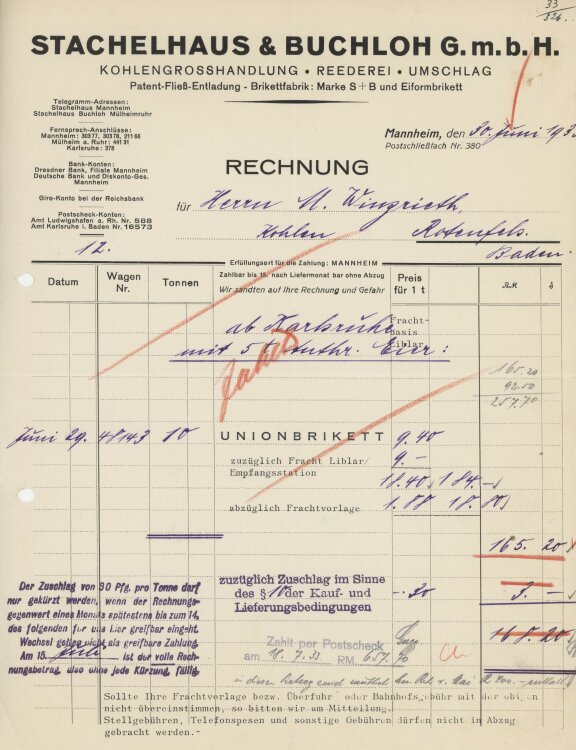 33
326.
STACHELHAUS & BUCHLOH G.m.b.H.
KOHLENGROSSHANDLUNG • REEDEREI • UMSCHLAG
Patent-Fließ-Entladung - Brikettfabrik: Marke S+B und Eiformbrikett
Telegramm-Adressen:
Stachelhaus Mannheim
Stachelhaus Buchloh Mülheimruhr
Fernsprech-Anschlüsse:
Mannheim: 30377, 30378, 211 66
Mülheim a. Ruhr: 441 31
Karlsruhe: 378
Bank-Konten:
Dresdner Bank, Filiale Mannheim
Deutsche Bank und Diskonto-Ges.
Mannheim
Giro-Konto bei der Reichsbank
Postscheck-Konten:
Amt Ludwigshafen a. Rh. Nr. 588
Amt Karlsruhe i. Baden Nr. 16573
12.
Mannheim, den 30. Juni 193
Postschließfach Nr. 380
RECHNUNG
für Herrn M. Wingrieth,
Kohlen Rotenfels.
Baden.
Erfüllungsort für die Zahlung: MANNHEIM
Datum Wagen Nr. Tonnen
Zahlbar bis 15. nach Liefermonat bar ohne Abzug
Wir sandten auf Ihre Rechnung und Gefahr
Preis für 1 t
RM
ab Karlsruhe
Fracht-
basis
Liblar
mit 5t Anthr. Eier:
165.20
92.50
257.70
Juni 29. 48143 10 UNIONBRIKETT 9.40
zuzüglich Fracht Liblar/
Empfangsstation
9.-
18.40 184.-
abzüglich Frachtvorlage 1.88 18.80
165.20
zuzüglich Zuschlag im Sinne
des § 10 der Kauf- und
Lieferungsbedingungen
-.30 3.-
168.20
Der Zuschlag von 30 Pfg. pro Tonne darf
nur gekürzt werden, wenn der Rechnungs-
gegenwert eines Monats spätestens bis zum 14.
des folgenden für uns hier greifbar eingeht.
Wechsel gelten nicht als greifbare Zahlung.
Am 15. Juli ist der volle Rech-
nungsbetrag, also ohne jede Kürzung, fällig.
Zahlt per Postscheck
am 18.7.33 RM. 657.70
Sollte Ihre Frachtvorlage bezw. Überfuhr- oder Bahnhofsgebühr mit der obigen
nicht übereinstimmen, so bitten wir um Mitteilung.
Stellgebühren, Telefonspesen und sonstige Gebühren dürfen nicht in Abzug
gebracht werden.-